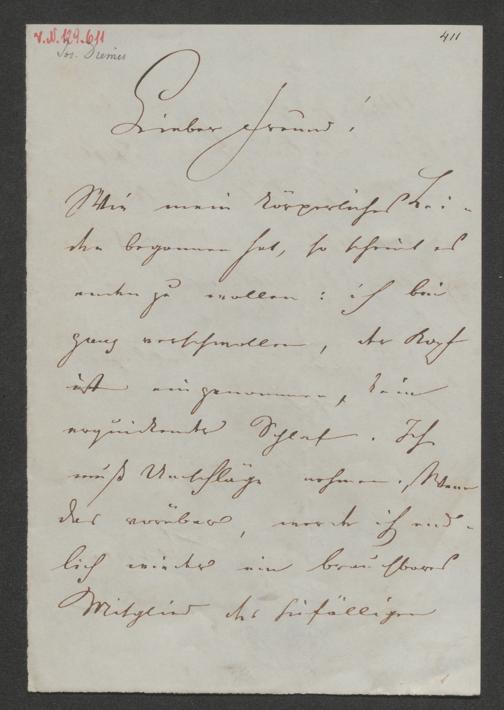 V.N. 129.611
411
Lieber Freund!
Wie mein körperliches Lei-
den begonnen hat, so scheint es
enden zu wollen: ich bin
ganz verschwollen, der Kopf
ist eingenommen, kein
erquickender Schlaf. Ich
muß Umschläge nehmen. Wenn
das vorüber, werde ich end-
lich wieder ein brauchbares
Mitglied der